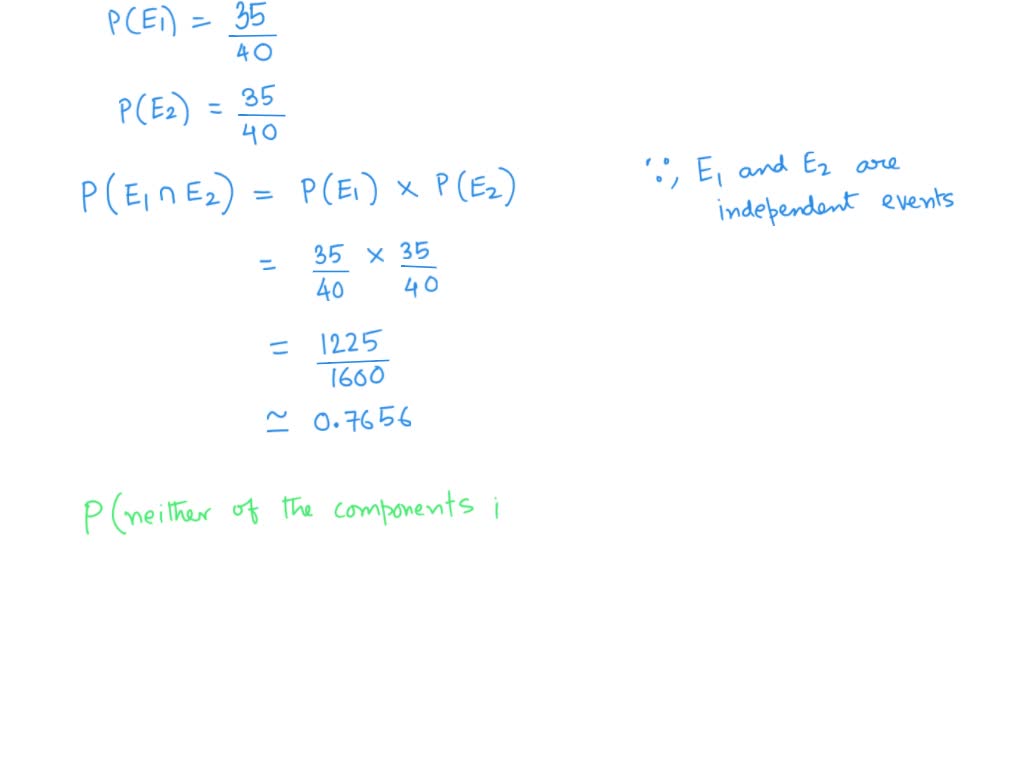 P(E₁) = 35/40
P(E₂) = 35/40
P(E₁ ∩ E₂) = P(E₁) × P(E₂) ∵, E₁ and E₂ are
independent events
= 35/40 × 35/40
= 1225/1600
≃ 0.7656
P(neither of the components i